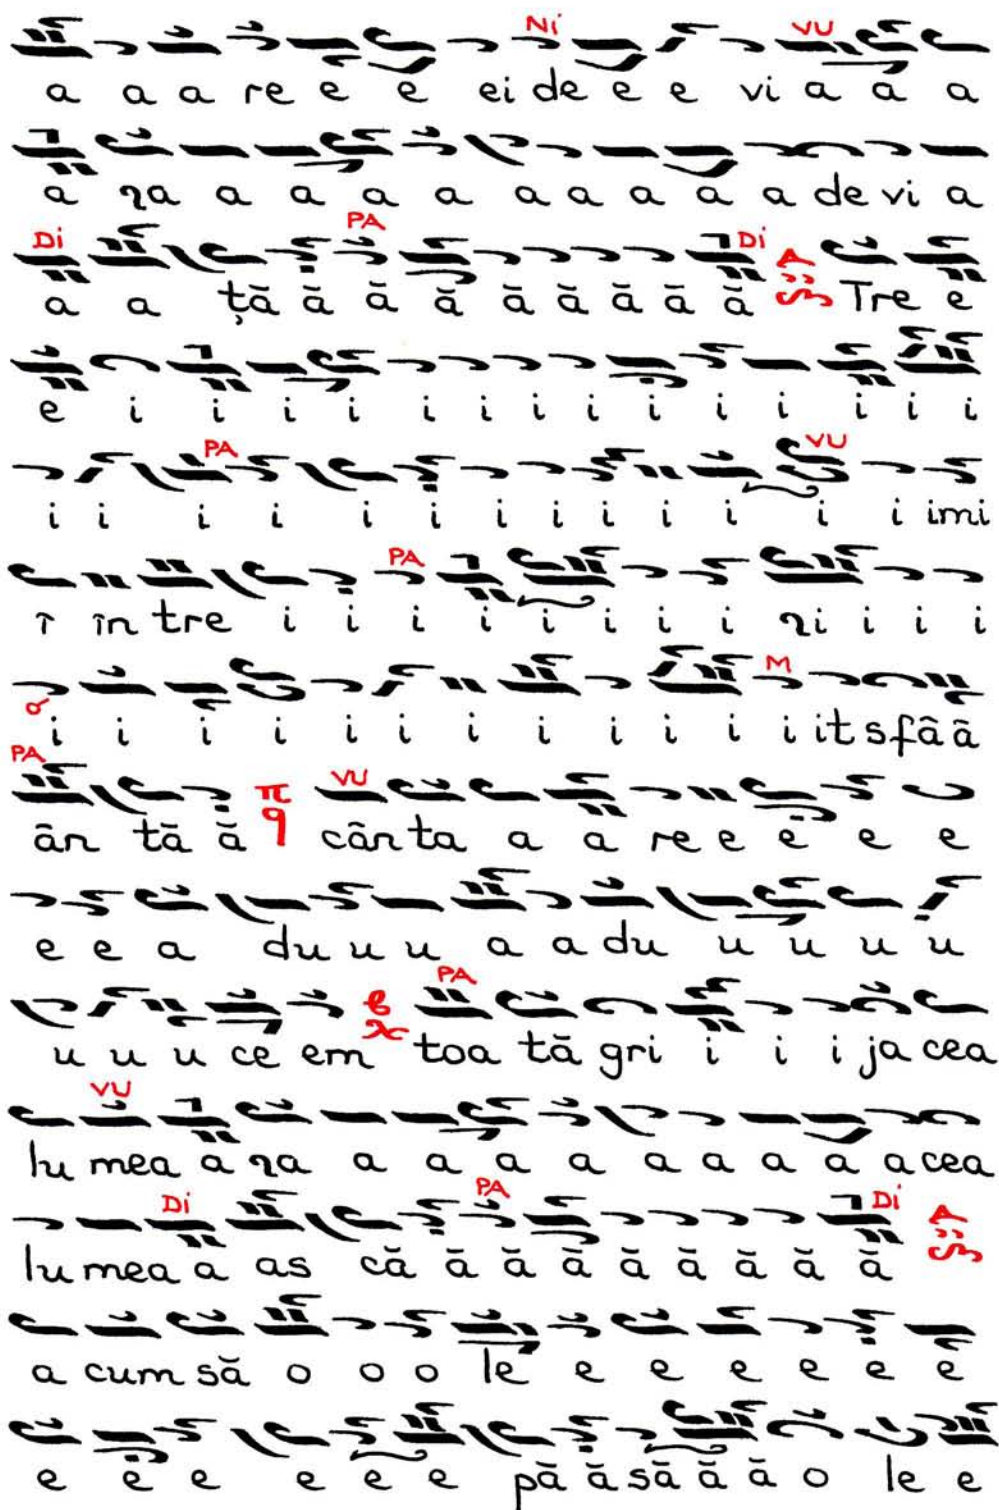 Ni VU
a a a re e e ei de e e vi a a a
a ra a a a a a a a a a de vi a
Di PA Di
a a ță ă ă ă ă ă ă ă ă Tre e
e i i i i i i i i i i i i i i
PA VU
i i i i i i i i i i i i i imi
PA
î în tre i i i i i i i i ri i i i
M
i i i i i i i i i i i i it sfâ ă
PA VU
ân tă ă π q cân ta a a re e e e e
e e a du u u a a du u u u u
PA
u u u ce em toa tă gri i i i ja cea
VU
lu mea a ra a a a a a a a a a cea
Di PA Di
lu mea a as că ă ă ă ă ă ă ă ă
a cum să o o o le e e e e e e
e e e e e e pă ă să ă ă o le e